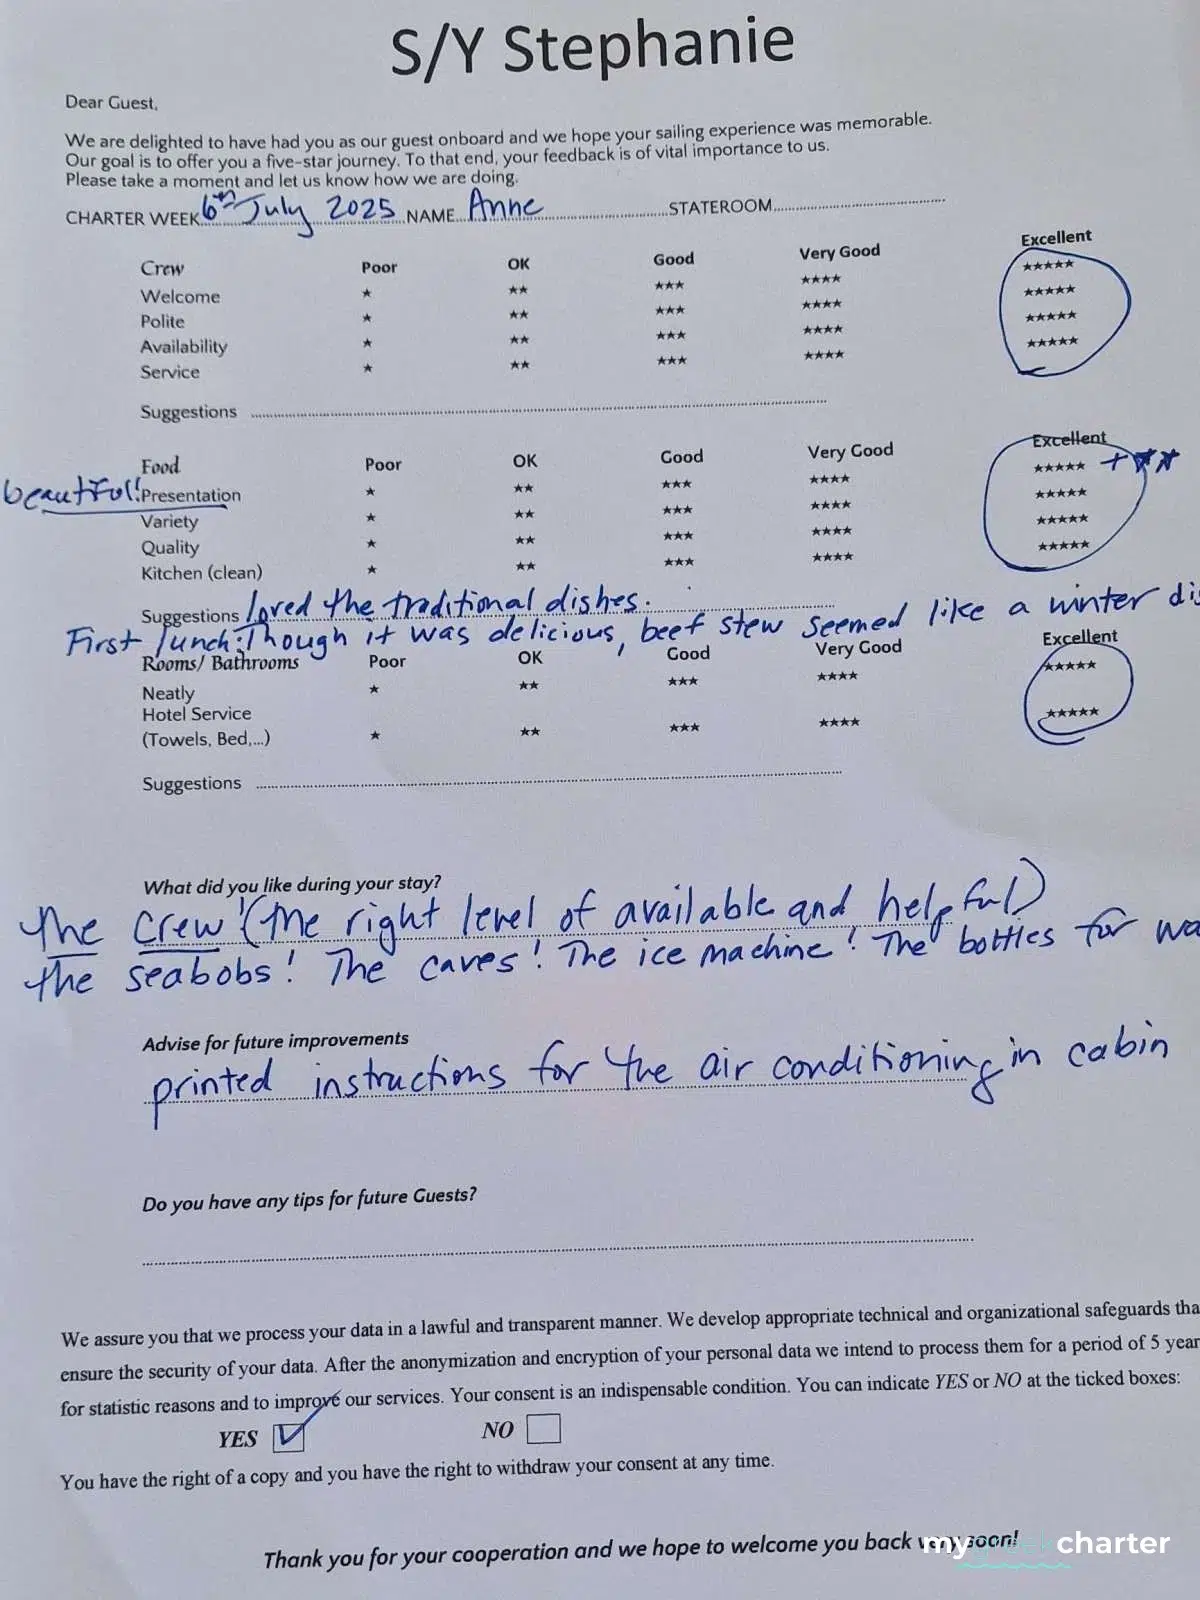 S/Y Stephanie
Dear Guest,
We are delighted to have had you as our guest onboard and we hope your sailing experience was memorable.
Our goal is to offer you a five-star journey. To that end, your feedback is of vital importance to us.
Please take a moment and let us know how we are doing.
CHARTER WEEK 6th July 2025 NAME Anne STATEROOM
Crew Poor OK Good Very Good Excellent
Welcome ★ ★★ ★★★ ★★★★ ★★★★★
Polite ★ ★★ ★★★ ★★★★ ★★★★★
Availability ★ ★★ ★★★ ★★★★ ★★★★★
Service ★ ★★ ★★★ ★★★★ ★★★★★
Suggestions
Food Poor OK Good Very Good Excellent
beautiful! Presentation ★ ★★ ★★★ ★★★★ ★★★★★ + ★★
Variety ★ ★★ ★★★ ★★★★ ★★★★★
Quality ★ ★★ ★★★ ★★★★ ★★★★★
Kitchen (clean) ★ ★★ ★★★ ★★★★ ★★★★★
Suggestions loved the traditional dishes.
First lunch: Though it was delicious, beef stew seemed like a winter
Rooms/ Bathrooms Poor OK Good Very Good Excellent
Neatly ★ ★★ ★★★ ★★★★ ★★★★★
Hotel Service
(Towels, Bed,...) ★ ★★ ★★★ ★★★★ ★★★★★
Suggestions
What did you like during your stay?
The Crew! (the right level of available and helpful)
the seabobs! The caves! The ice machine! The bottles for
Advise for future improvements
printed instructions for the air conditioning in cabin
Do you have any tips for future Guests?
We assure you that we process your data in a lawful and transparent manner. We develop appropriate technical and organizational safeguards tha
ensure the security of your data. After the anonymization and encryption of your personal data we intend to process them for a period of 5 year
for statistic reasons and to improve our services. Your consent is an indispensable condition. You can indicate YES or NO at the ticked boxes:
YES ☑ NO ☐
You have the right of a copy and you have the right to withdraw your consent at any time.
Thank you for your cooperation and we hope to welcome you back very soon!
mygreekcharter